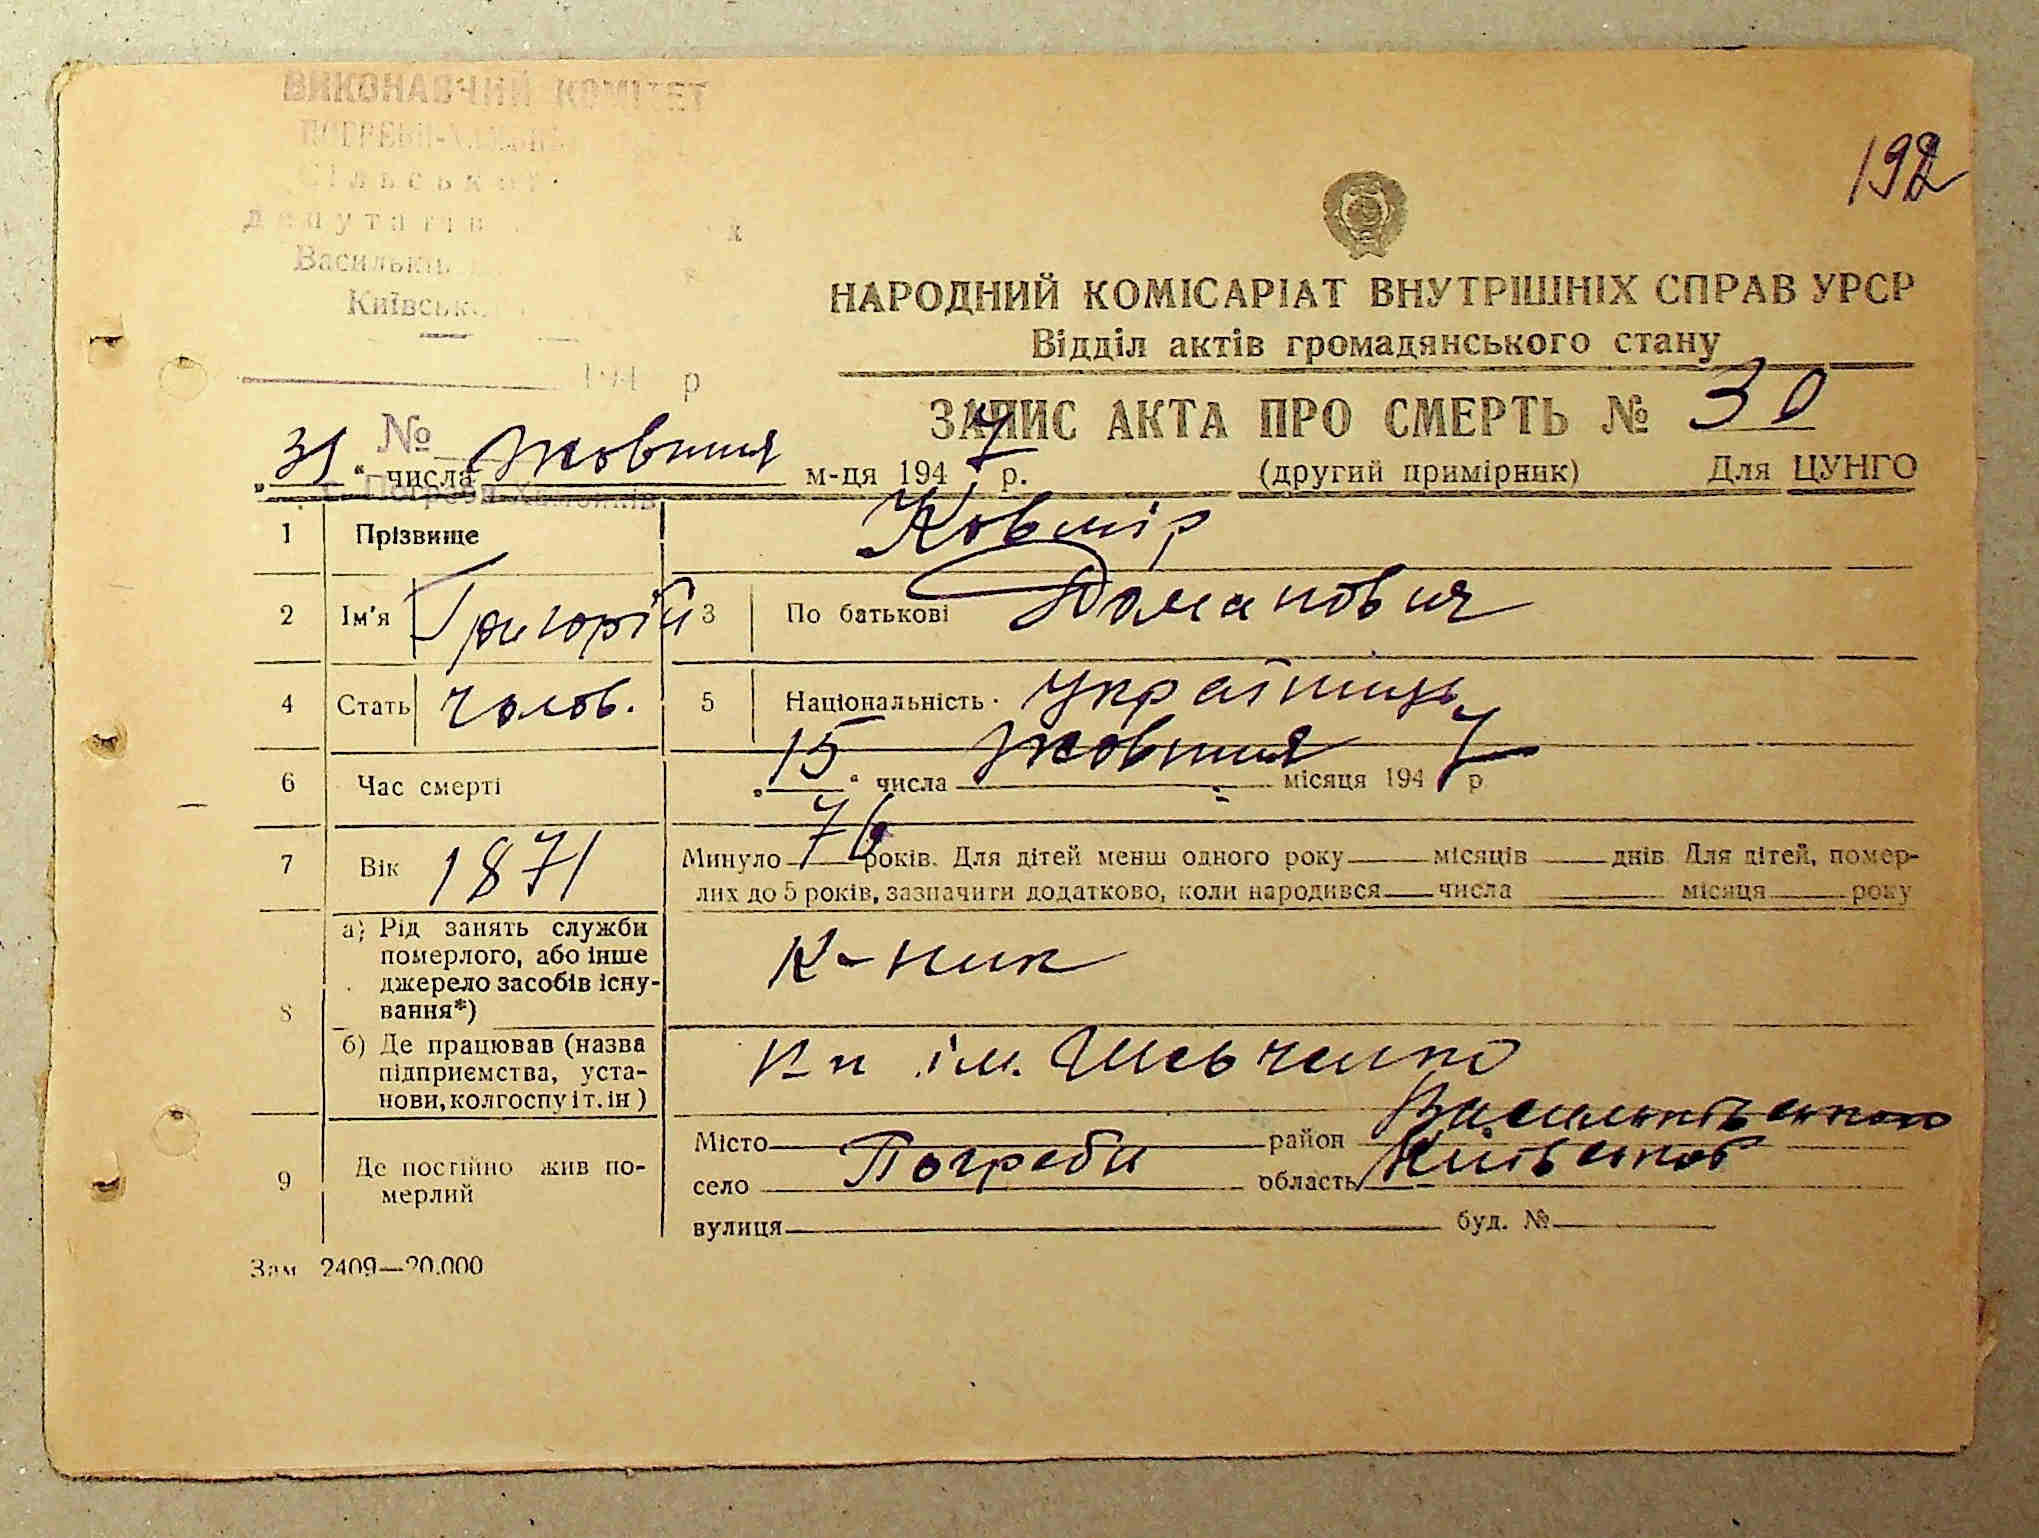 ВИКОНАВЧИЙ КОМІТЕТ
192
НАРОДНИЙ КОМІСАРІАТ ВНУТРІШНІХ СПРАВ УРСР
Відділ актів громадянського стану
194 р
ЗАПИС АКТА ПРО СМЕРТЬ № 30
№
„31“ числа Жовтня м-ця 1947 р. (другий примірник) Для ЦУНГО
1 Прізвище Ковтір
2 Ім'я Григорій 3 По батькові Романович
4 Стать чолов. 5 Національність Українець
6 Час смерті „15“ числа Жовтня місяця 1947 р
7 Вік 1871 Минуло 76 років. Для дітей менш одного року місяців днів. Для дітей, помер-
лих до 5 років, зазначити додатково, коли народився числа місяця року
8 а) Рід занять служби
померлого, або інше
джерело засобів існу-
вання*)
К-ник
б) Де працював (назва
підприємства, уста-
нови, колгоспу і т. ін)
К-п ім. Шевченко
9 Де постійно жив по-
мерлий
Місто район Васильківського
село Погреби область Київської
вулиця буд. №
Зам 2409—20.000